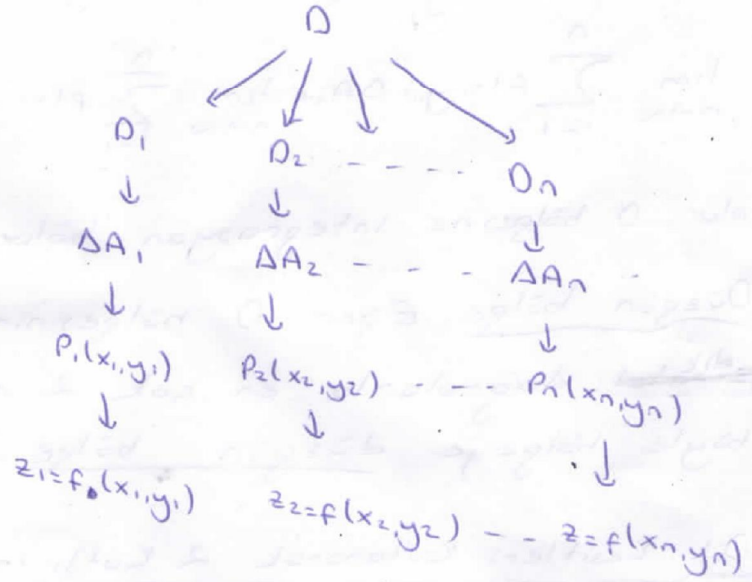 D
D₁ D₂ - - - - - Dn
ΔA₁ ΔA₂ - - - - ΔAn
P₁(x₁,y₁) P₂(x₂,y₂) - - - Pn(xn,yn)
z₁=f(x₁,y₁) z₂=f(x₂,y₂) - - z=f(xn,yn)